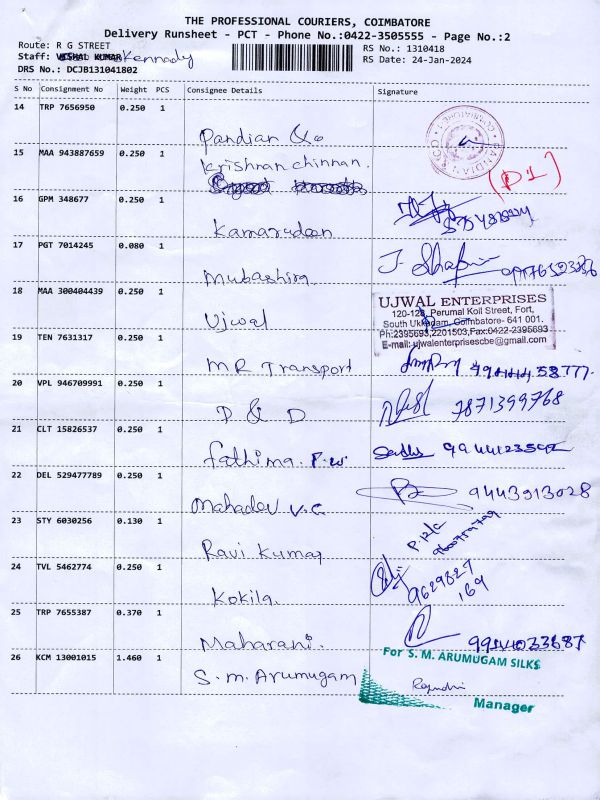 THE PROFESSIONAL COURIERS, COIMBATORE
Delivery Runsheet - PCT - Phone No.:0422-3505555 - Page No.:2
Route: R G STREET
RS No.: 1310418
Staff: VISHAL KUMAR Kennady
RS Date: 24-Jan-2024
DRS No.: DCJB131041802
S No Consignment No Weight PCS Consignee Details Signature
14 TRP 7656950 0.250 1 Pandian & Co
15 MAA 943887659 0.250 1 Krishnan chinnan.
(D1)
16 GPM 348677 0.250 1 Kamarudeen
17 PGT 7014245 0.080 1 Mubashira J. Shafi
18 MAA 300404439 0.250 1 Ujwal
UJWAL ENTERPRISES
120-128, Perumal Koil Street, Fort,
South Ukkadam, Coimbatore- 641 001.
Ph:2395693,2201503,Fax:0422-2395693
E-mail: ujwalenterprisescbe@gmail.com
19 TEN 7631317 0.250 1 MR Transport
20 VPL 946709991 0.250 1 D & D 7871399768
21 CLT 15826537 0.250 1 fathima. P.W.
22 DEL 529477789 0.250 1 Mahadev V.C 9443913028
23 STY 6030256 0.130 1 Ravi Kumar
24 TVL 5462774 0.250 1 Kokila. 9629827
169
25 TRP 7655387 0.370 1 Maharani.
26 KCM 13001015 1.460 1 S.M. Arumugam
For S. M. ARUMUGAM SILKS
Manager